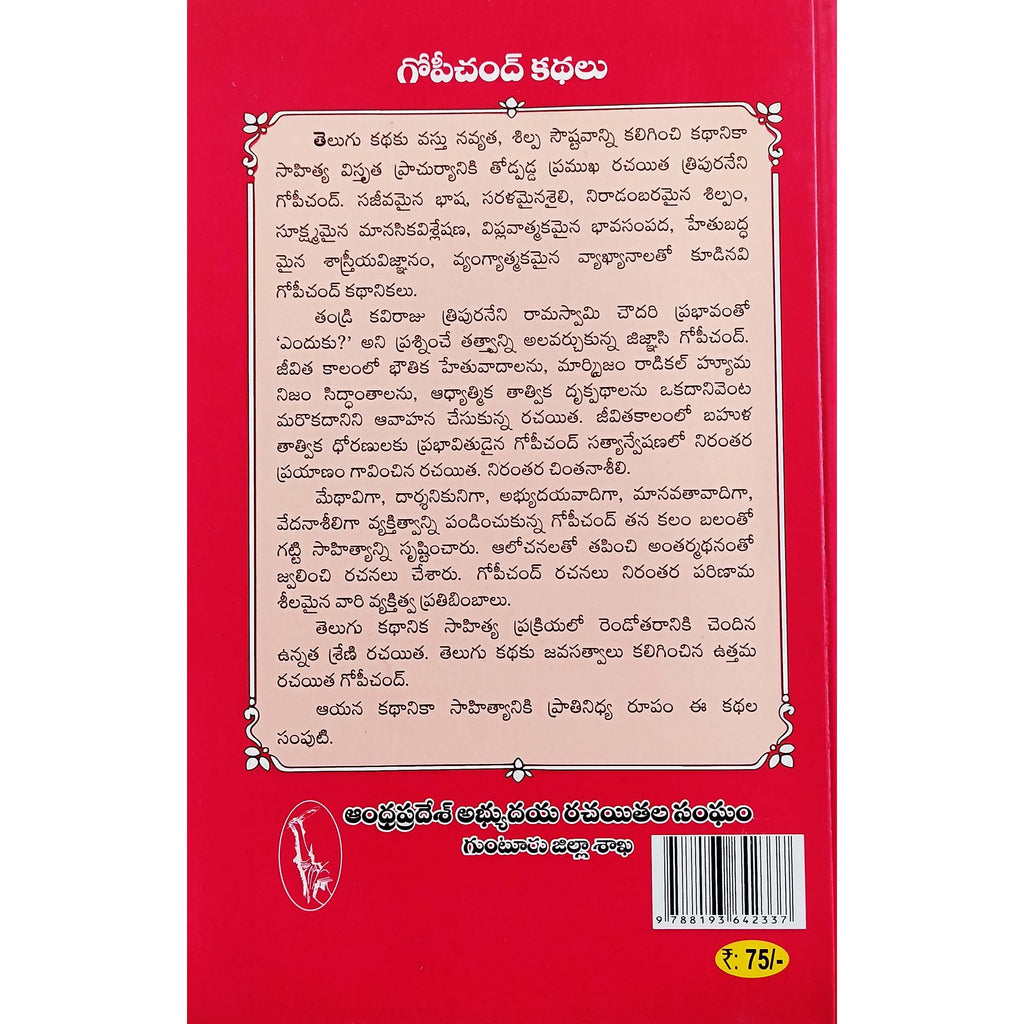 గోపీచంద్ కథలు
తెలుగు కథకు వస్తు నవ్యత, శిల్ప సౌష్టవాన్ని కలిగించి కథానికా
సాహిత్య విస్తృత ప్రాచుర్యానికి తోడ్పడ్డ ప్రముఖ రచయిత త్రిపురనేని
గోపీచంద్. సజీవమైన భాష, సరళమైనశైలి, నిరాడంబరమైన శిల్పం,
సూక్ష్మమైన మానసికవిశ్లేషణ, విప్లవాత్మకమైన భావసంపద, హేతుబద్ధ
మైన శాస్త్రీయవిజ్ఞానం, వ్యంగ్యాత్మకమైన వ్యాఖ్యానాలతో కూడినవి
గోపీచంద్ కథానికలు.
తండ్రి కవిరాజు త్రిపురనేని రామస్వామి చౌదరి ప్రభావంతో
‘ఎందుకు?’ అని ప్రశ్నించే తత్త్వాన్ని అలవర్చుకున్న జిజ్ఞాసి గోపీచంద్.
జీవిత కాలంలో భౌతిక హేతువాదాలను, మార్క్సిజం రాడికల్ హ్యూమ
నిజం సిద్ధాంతాలను, ఆధ్యాత్మిక తాత్విక దృక్పథాలను ఒకదానివెంట
మరొకదానిని ఆవాహన చేసుకున్న రచయిత. జీవితకాలంలో బహుళ
తాత్విక ధోరణులకు ప్రభావితుడైన గోపీచంద్ సత్యాన్వేషణలో నిరంతర
ప్రయాణం గావించిన రచయిత. నిరంతర చింతనాశీలి.
మేథావిగా, దార్శనికునిగా, అభ్యుదయవాదిగా, మానవతావాదిగా,
వేదనాశీలిగా వ్యక్తిత్వాన్ని పండించుకున్న గోపీచంద్ తన కలం బలంతో
గట్టి సాహిత్యాన్ని సృష్టించారు. ఆలోచనలతో తపించి అంతర్మథనంతో
జ్వలించి రచనలు చేశారు. గోపీచంద్ రచనలు నిరంతర పరిణామ
శీలమైన వారి వ్యక్తిత్వ ప్రతిబింబాలు.
తెలుగు కథానిక సాహిత్య ప్రక్రియలో రెండోతరానికి చెందిన
ఉన్నత శ్రేణి రచయిత. తెలుగు కథకు జవసత్వాలు కలిగించిన ఉత్తమ
రచయిత గోపీచంద్.
ఆయన కథానికా సాహిత్యానికి ప్రాతినిధ్య రూపం ఈ కథల
సంపుటి.
ఆంధ్రప్రదేశ్ అభ్యుదయ రచయితల సంఘం
గుంటూరు జిల్లా శాఖ
9 788193 642337
₹: 75/-